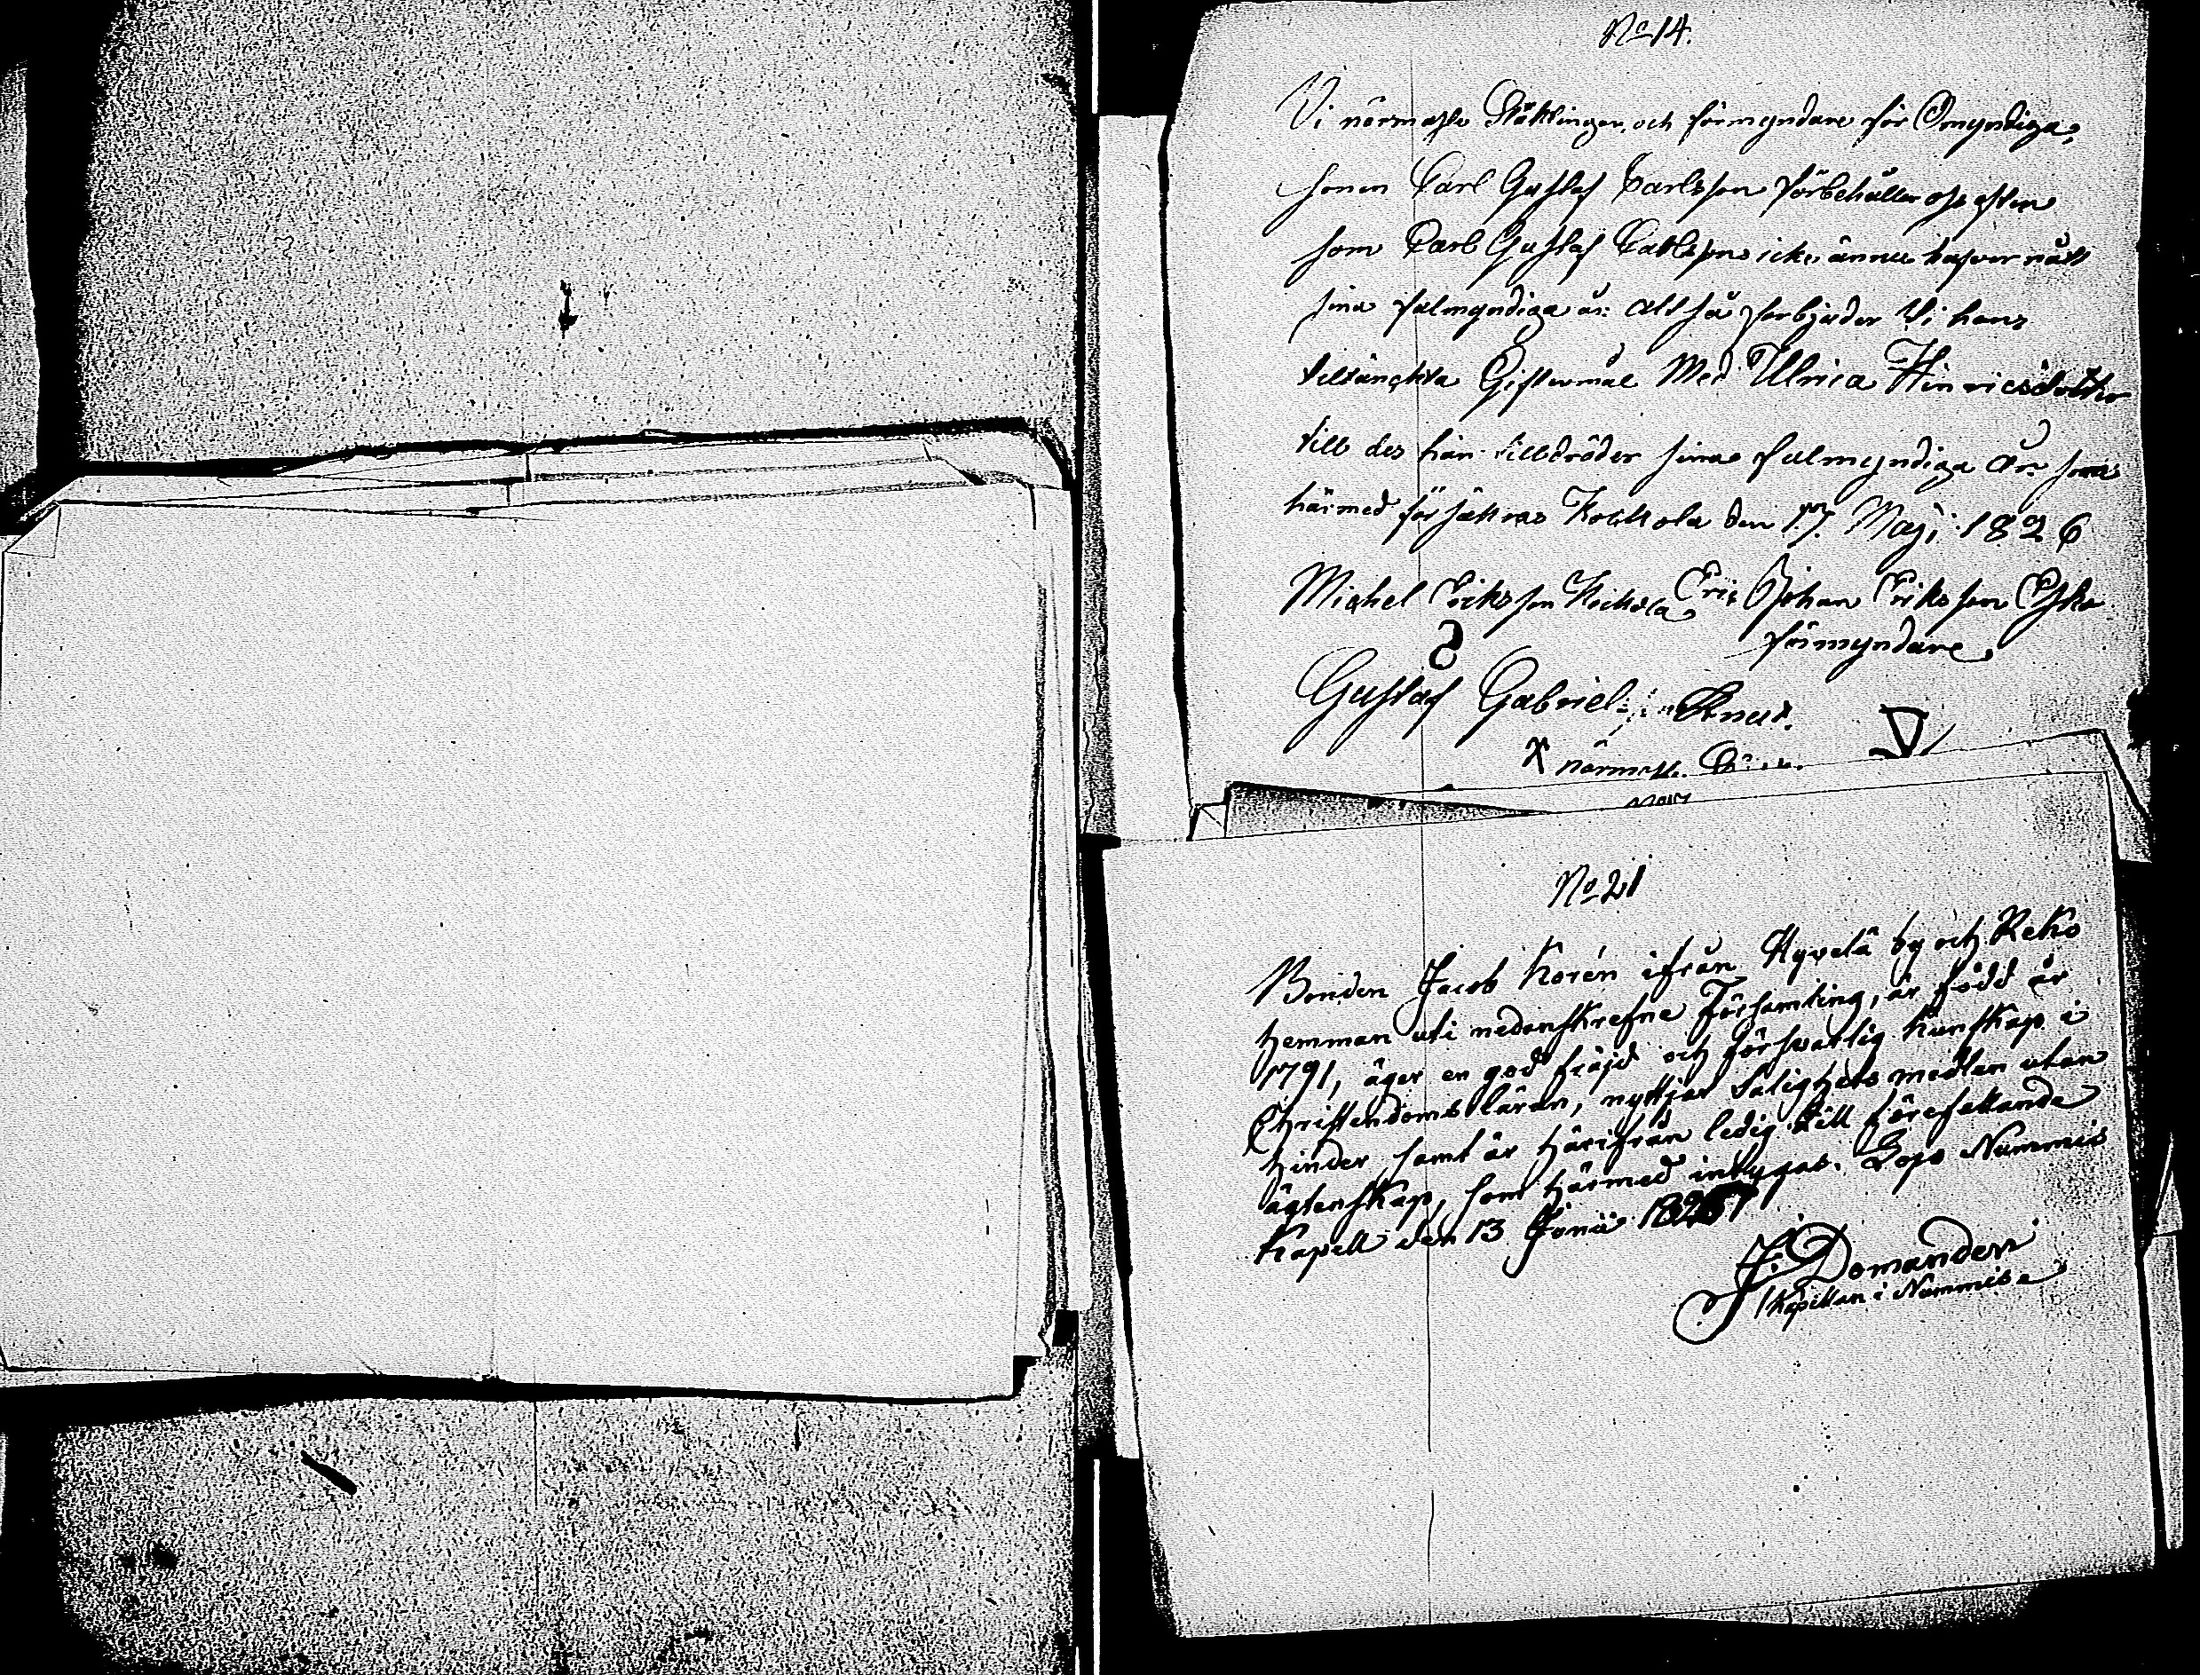 No 14.
Vi närmaste Släktingar och förmyndare för Omyndiga
sonen Carl Gustaf Carlsson förbehåller oss efter
som Carl Gustaf Carlsson icke ännu hafver nått
sina fulmyndiga år: altså förbjuder Vi hans
tiltänckta Giftermål Med Ulrica Hinricsdotter
till des han tillträder sina fulmyndiga år som
härmed försäkras Kockola den 17 Maji 1826
Michel Erickson Kockola Eric Johan Erikson Esko
förmyndare
Gustaf Gabriel Knut
närmste
No 21
Bonden Jacob Korén ifrån Hyvelä by och Reko
hemman uti nedanskrefne Församling, är född år
1791, äger en god fräjd och försvarlig kunskap i
Christendoms läran, nyttjar Salighets medlen utan
hinder samt är härifrån ledig till förefallande
ägtenskap, som härmed intygas. Lojo Nummis
Kapell den 13 Junii
J: Domander
Kapellan i Nummis